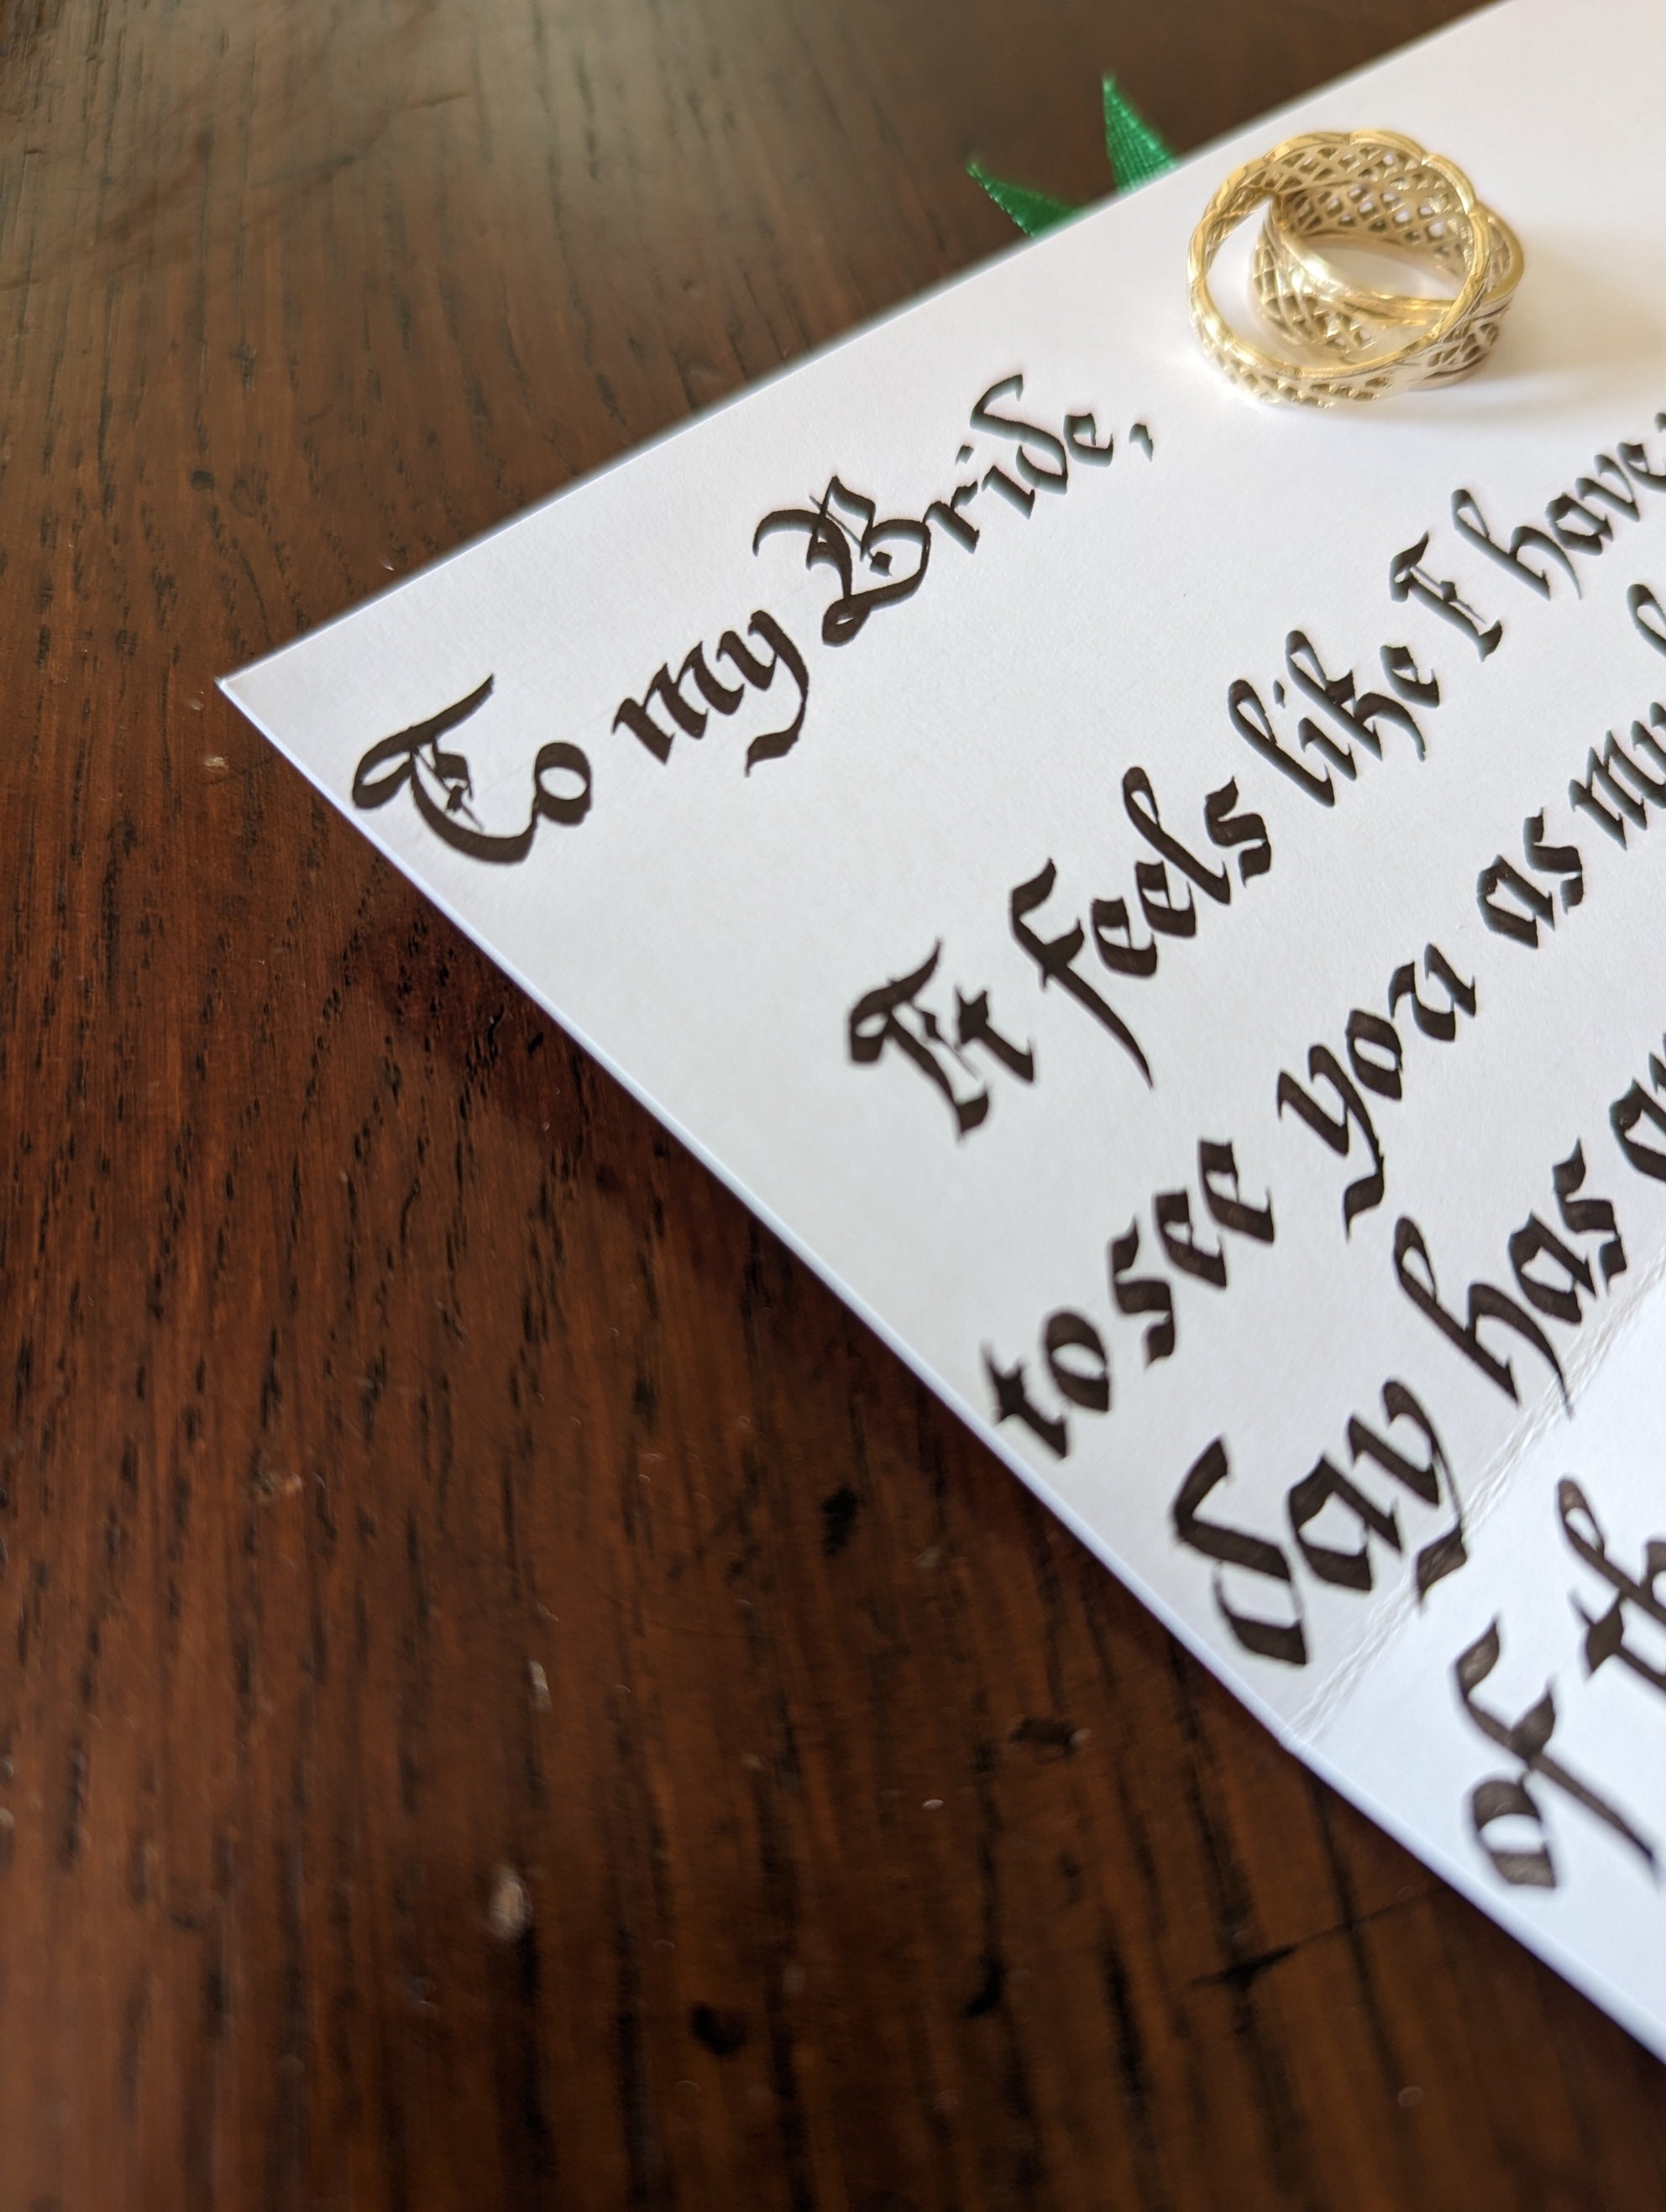 To my Bride,
It feels like I have
to see you as
day has
of